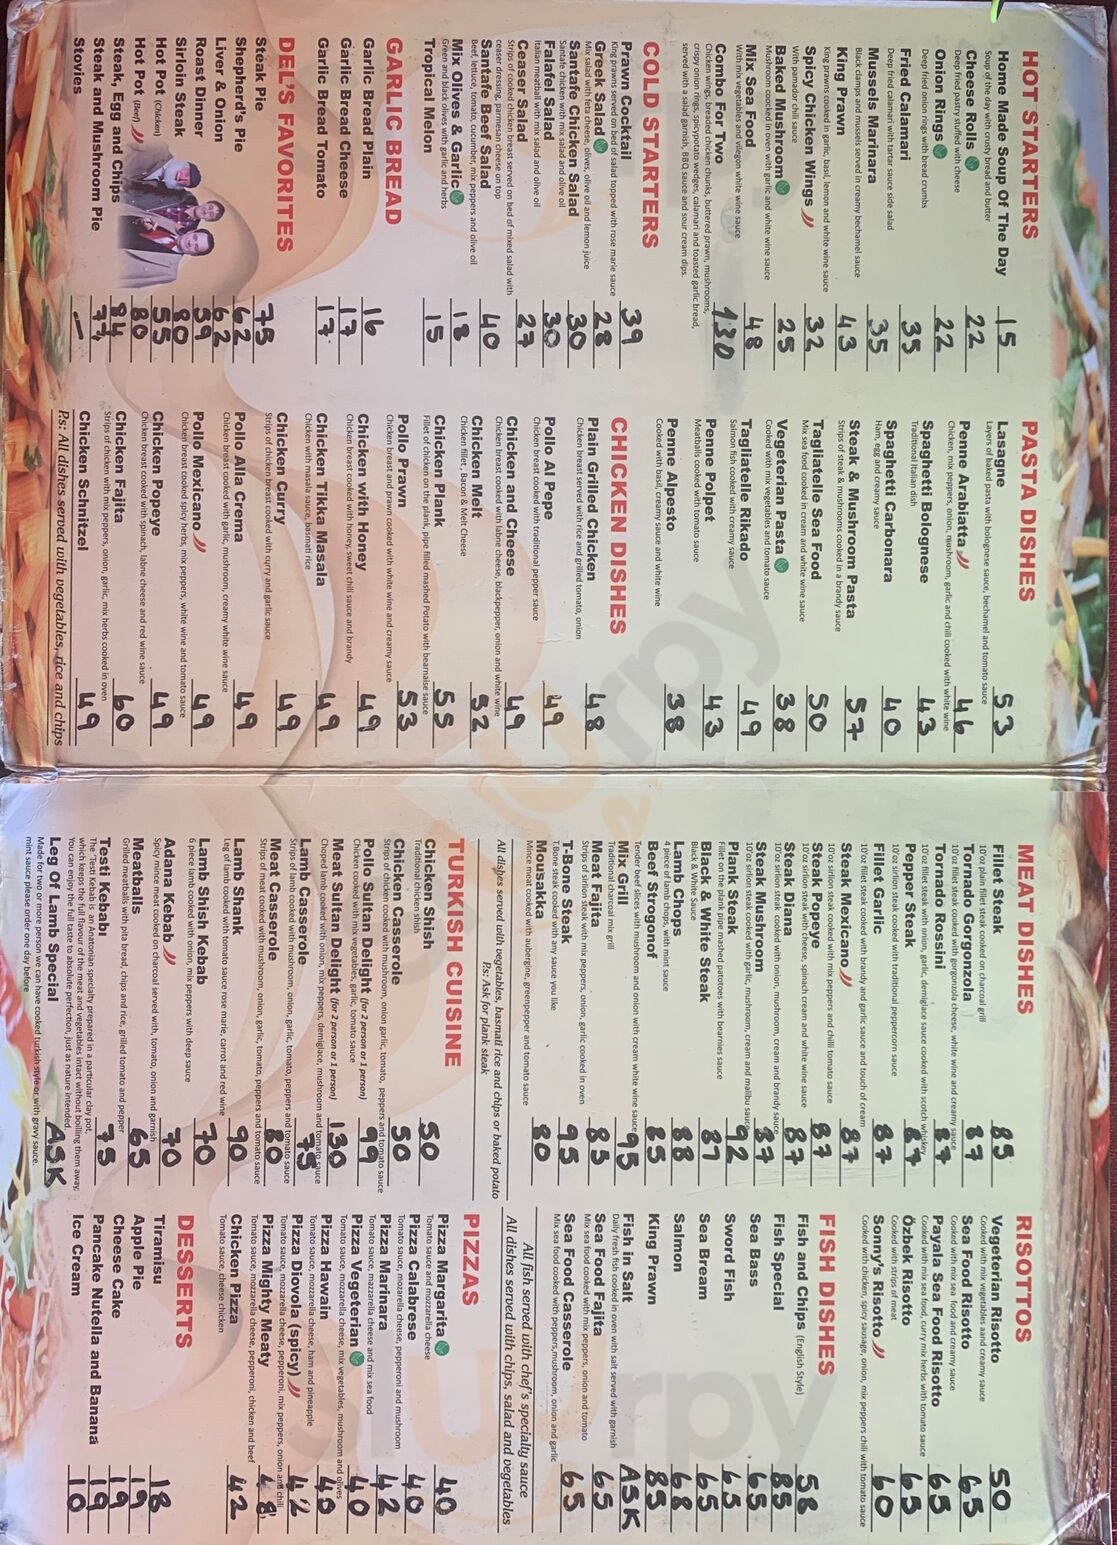 HOT STARTERS
Home Made Soup Of The Day 15
Soup of the day with crusty bread and butter
Cheese Rolls 22
Deep fried pastry stuffed with cheese
Onion Rings 22
Deep fried onion rings with bread crumbs
Fried Calamari 35
Deep fried calamari with tartar sauce side salad
Mussels Marinara 35
Black clamps and mussels served in creamy bechamel sauce
King Prawn 43
King prawns cooked in garlic, basil, lemon and white wine sauce
Spicy Chicken Wings 32
With pamador chili sauce
Baked Mushroom 25
Mushroom coocked in oven with garlic and white wine sauce
Mix Sea Food 48
With mix vegetables and vilegon white wine sauce
Combo For Two 130
Chicken wings, breaded chicken chunks, buttered prawn, mushrooms,
crispy onion rings, spicypotato wedges, calamari and toasted garlic bread,
served with a salad garnish, BBQ sauce and sour cream dips.
COLD STARTERS
Prawn Cocktail 39
King prawns served on bed of salad topped with rose marie sauce
Greek Salad 28
Mix salad with feta cheese, olives, olive oil and lemon juice
Santafe Chicken Salad 30
Santafe chicken with mix salad and olive oil
Falafel Salad 30
Italian meatball with mix salad and olive oil
Ceaser Salad 27
Strips of cooked chicken breast served on bed of mixed salad with
ceaser dressing, parmesan cheese on top
Santafe Beef Salad 40
Beef, lettuce, tomato, cucumber, mix peppers and olive oil
Mix Olives & Garlic 18
Green and black olives with garlic and herbs
Tropical Melon 15
GARLIC BREAD
Garlic Bread Plain 16
Garlic Bread Cheese 17
Garlic Bread Tomato 17
DEL'S FAVORITES
Steak Pie 75
Shepherd's Pie 62
Liver & Onion 62
Roast Dinner 59
Sirloin Steak 80
Hot Pot (Chicken) 55
Hot Pot (Beef) 80
Steak, Egg and Chips 84
Steak and Mushroom Pie 77
Stovies —
PASTA DISHES
Lasagne 53
Layers of baked pasta with bolognese sauce, bechamel and tomato sauce
Penne Arabiatta 46
Chicken, mix peppers, onion, mushroom, garlic and chili cooked with white wine
Spaghetti Bolognese 43
Traditional Italian dish
Spaghetti Carbonara 40
Ham, egg and creamy sauce
Steak & Mushroom Pasta 57
Strips of steak & mushrooms cooked in a brandy sauce
Tagliatelle Sea Food 50
Mix sea food cooked in cream and white wine sauce
Vegeterian Pasta 38
Cooked with mix vegetables and tomato sauce
Tagliatelle Rikado 49
Salmon fish cooked with creamy sauce
Penne Polpet 43
Meatballs cooked with tomato sauce
Penne Alpesto 38
Cooked with basil, creamy sauce and white wine
CHICKEN DISHES
Plain Grilled Chicken 48
Chicken breast served with rice and grilled tomato, onion
Pollo Al Pepe 49
Chicken breast cooked with traditional pepper sauce
Chicken and Cheese 49
Chicken breast cooked with labne cheese, blackpepper, onion and white wine
Chicken Melt 52
Chicken fillet , Bacon & Melt Cheese
Chicken Plank 55
Fillet of chicken on the plank, pipe filled mashed Potato with bearnaise sauce
Pollo Prawn 53
Chicken breast and prawn cooked with white wine and creamy sauce
Chicken with Honey 49
Chicken breast cooked with honey, sweet chili sauce and brandy
Chicken Tikka Masala 49
Chicken with masala sauce, basmati rice
Chicken Curry 49
Strips of chicken breast cooked with curry and garlic sauce
Pollo Alla Crema 49
Chicken breast cooked with garlic, mushroom, creamy white wine sauce
Pollo Mexicano 49
Chicken breast cooked spicy herbs, mix peppers, white wine and tomato sauce
Chicken Popeye 49
Chicken breast cooked with spinach, labne cheese and red wine sauce
Chicken Fajita 60
Strips of chicken with mix peppers, onion, garlic, mix herbs cooked in oven
Chicken Schnitzel 49
P.s: All dishes served with vegetables, rice and chips
MEAT DISHES
Fillet Steak 85
10'oz plain fillet steak cooked on charcoal grill
Tornado Gorgonzola 87
10'oz fillet steak cooked with gorgonzola cheese, white wine and creamy sauce
Tornado Rossini 87
10'oz fillet steak with onion, garlic, demiglace sauce cooked with scotch whiskey
Pepper Steak 87
10'oz sirloin steak cooked with traditional peppercorn sauce
Fillet Garlic 87
10'oz fillet steak cooked with brandy and garlic sauce and touch of cream
Steak Mexicano 87
10'oz sirloin steak cooked with mix peppers and chilli tomato sauce
Steak Popeye 87
10'oz sirloin steak with cheese, spinach cream and white wine sauce
Steak Diana 87
10'oz sirloin steak cooked with onion, mushroom, cream and brandy sauce
Steak Mushroom 87
10'oz sirloin steak cooked with garlic, mushroom, cream and malibu sauce
Plank Steak 92
Fillet on the plank pipe mashed patatoes with bearnies sauce
Black & White Steak 87
Black & White Sauce
Lamb Chops 88
4 piece of lamb chops, with mint sauce
Beef Strogonof 85
Tender beef slices with mushroom and onion with cream white wine sauce
Mix Grill 95
Traditional charcoal mix grill
Meat Fajita 83
Strips of sirlion steak with mix peppers, onion, garlic cooked in oven
T-Bone Steak 95
T.Bone steak cooked with any sauce you like
Mousakka 80
Mince meat cooked with aubergine, greenpepper and tomato sauce
All dishes served with vegetables, basmati rice and chips or baked potato
P.s: Ask for plank steak
TURKISH CUISINE
Chicken Shish 50
Traditional chicken shish
Chicken Casserole 50
Strips of chicken cooked with mushroom, onion garlic, tomato, peppers and tomato sauce
Pollo Sultan Delight (for 2 person or 1 person) 99
Chicken cooked with mix vegetables, garlic, tomato sauce
Meat Sultan Delight (for 2 person or 1 person) 130
Choped lamb cooked with onion, mix peppers, demiglace, mushroom and tomato sauce
Lamb Casserole 75
Strips of lamb cooked with mushroom, onion, garlic, tomato, peppers and tomato sauce
Meat Casserole 80
Strips of meat cooked with mushroom, onion, garlic, tomato, peppers and tomato sauce
Lamb Shank 90
Leg of lamb cooked with tomato sauce rose marie, carrot and red wine
Lamb Shish Kebab 70
6 piece lamb cooked with onion, mix peppers with deep sauce
Adana Kebab 70
Spicy mince meat cooked on charcoal served with, tomato, onion and garnish
Meatballs 65
Grilled meatballs with pita bread, chips and rice, grilled tomato and pepper
Testi Kebabı 75
The 'Testi Kebab' is an Anatonian specialty prepared in a particular clay pot,
which keeps the full flavour of the meat and vegetables intact without boilling them away,
You can enjoy the full taste to absolute perfection, just as nature intended.
Leg Of Lamb Special ASK
Made for two or more person we can have cooked turkish style or with gravy sauce.
mint sauce please order one day before
RISOTTOS
Vegeterian Risotto 50
Cooked with mix vegetables aand creamy sauce
Sea Food Risotto 65
Cooked with mix sea food and creamy sauce
Payala Sea Food Risotto 65
Cooked with mix sea food, curry mix herbs with tomato sauce
Özbek Risotto 65
Cooked with strips of meat
Sonny's Risotto 60
Cooked with chicken, spicy sausage, onion, mix peppers chili with tomato sauce
FISH DISHES
Fish and Chips (English Style) 58
Fish Special 85
Sea Bass 65
Sword Fish 65
Sea Bream 65
Salmon 68
King Prawn 85
Fish in Salt ASK
Daily fresh fish cooked in oven with salt served with garnish
Sea Food Fajita 65
Mix sea food cooked with mix peppers, onion and tomato
Sea Food Casserole 65
Mix sea food cooked with peppers, mushroom, onion and garlic
All fish served with chef's specialty sauce
All dishes served with chips, salad and vegetables
PIZZAS
Pizza Margarita 40
Tomato sauce and mozzarella cheese
Pizza Calabrese 40
Tomato sauce, mozzarella cheese, pepperoni and mushroom
Pizza Marinara 42
Tomato sauce, mozzarella cheese and mix sea food
Pizza Vegeterian 40
Tomato sauce, mozzarella cheese, mix vegetables, mushroom and olives
Pizza Hawain 40
Tomato sauce, mozzarella cheese, ham and pineapple
Pizza Diovola (spicy) 42
Tomato sauce, mozzarella cheese, pepperoni, mix peppers, onion and chili
Pizza Mighty Meaty 48
Tomato sauce, mozzarella cheese, pepperoni, chicken and beef
Chicken Pizza 42
Tomato sauce, cheese chicken
DESSERTS
Tiramisu 18
Apple Pie 19
Cheese Cake 19
Pancake Nutella and Banana 19
Ice Cream 10